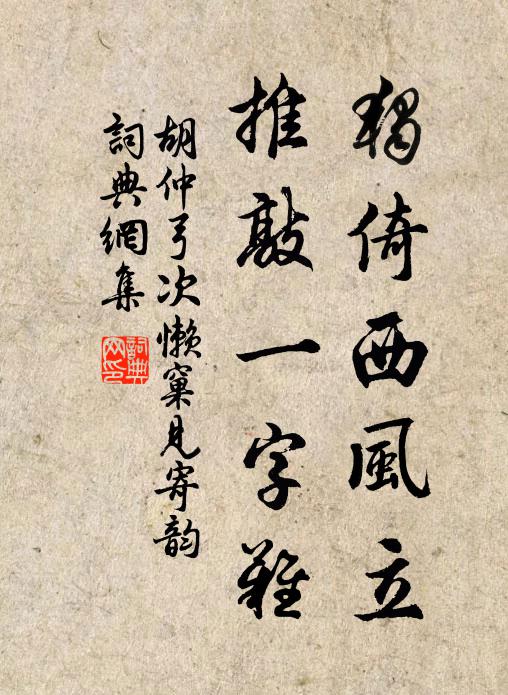 獨倚西風立
推敲一字難
胡仲弓次懶窠見寄韵
詞典網集
詞典网印